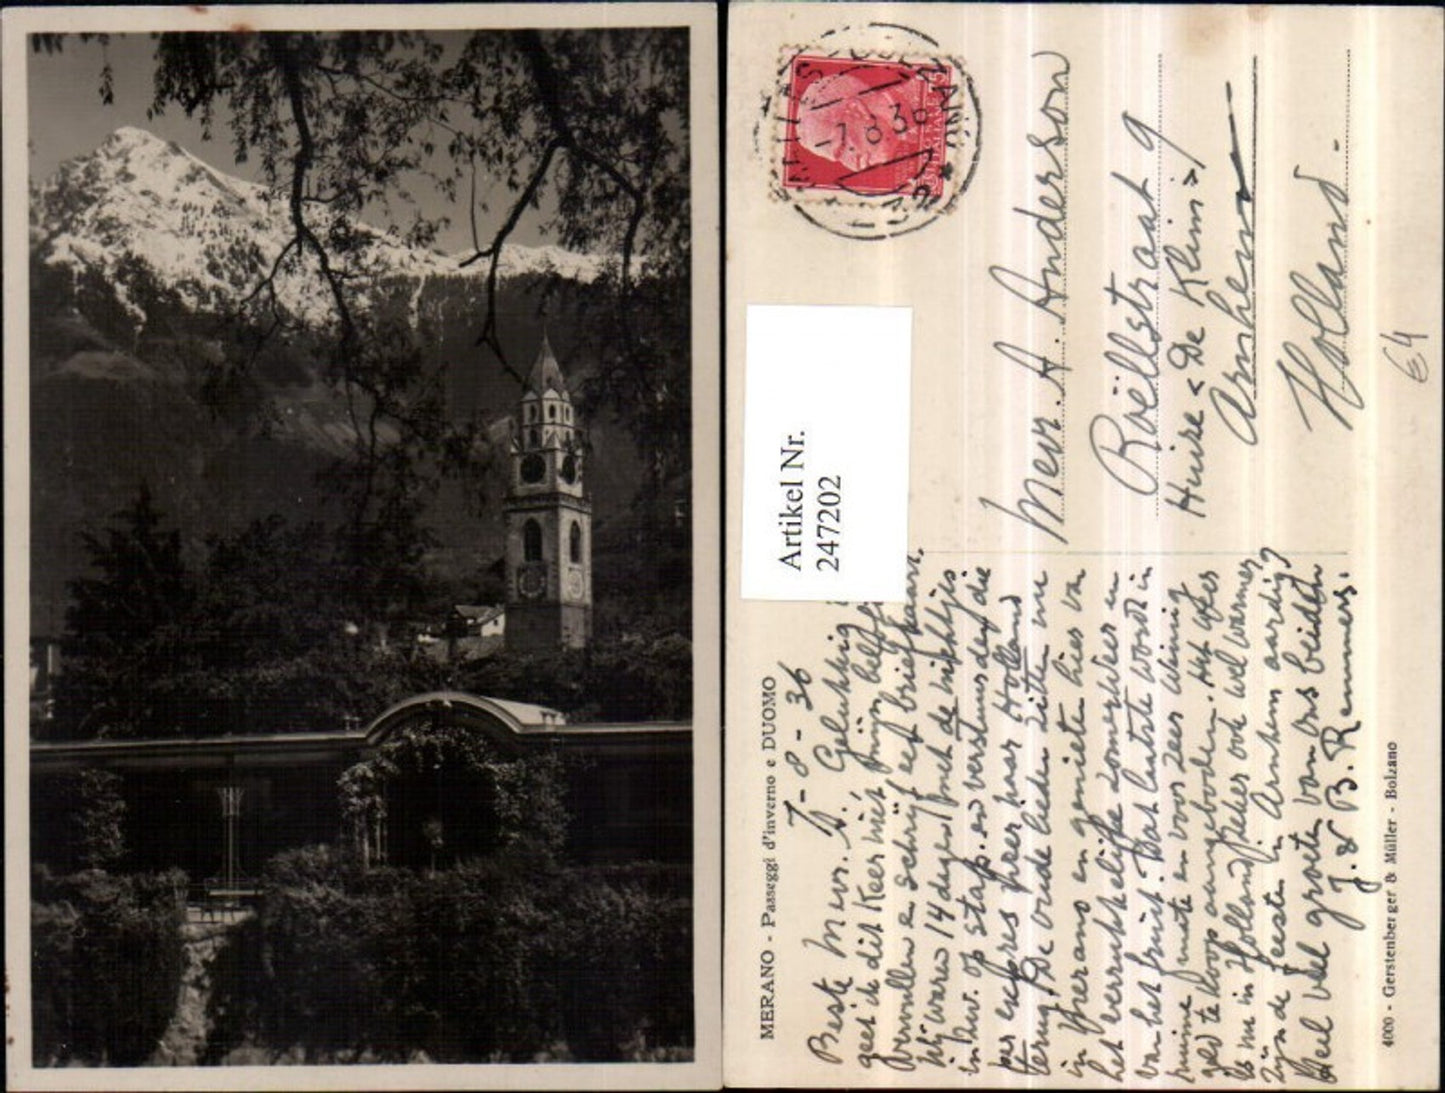 MERANO - Passeggi d'inverno e DUOMO
7-8-36
Beste Mevr. A., Gelukkig
geef ik dit keer niet mijn belofte
vervullen en schrijf een briefkaart.
Wij waren 14 dagen met de nichtjes
in Zw. op stap. en verstuurden die
per expres weer naar Holland
terug. De oude lieden zitten nu
in Merano en genieten hier van
het verrukkelijke zomerweer en
van het fruit. Dat laatste wordt in
ruime mate en voor zeer weinig
geld te koop aangeboden. Het weer
is nu in Holland zeker ook wel warmer
Zijn de feesten in Arnhem aardig?
Heel veel groeten van ons beiden
J. & B. Remmers.
Artikel Nr.
247202
-7.8.36
BOLZANO
Mevr. A. Anderson
Roëllstraat 9
Huize "De Kleim"
Arnhem
Holland.
€4
4000 - Gerstenberger & Müller - Bolzano